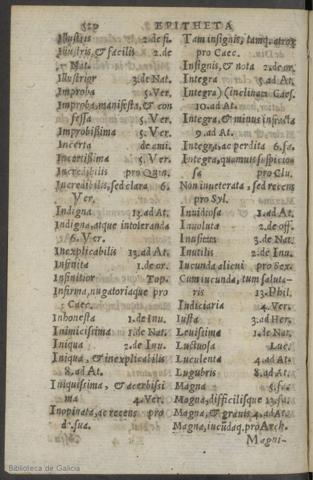 520 EPITHETA
Illustris 2. de fi.
Illustris, & facilis 2. de
Nat.
Illustrior 3. de Nat.
Improba 5. Ver.
Improba, manifesta, & con
fessa 5. Ver.
Improbissima 5. Ver.
Incerta de ami.
Incertissima 5. Ver.
Incredibilis pro Quin.
Incredibilis, sed clara 6.
Ver.
Indigna 13. ad At.
Indigna, atque intoleranda
6. Ver.
Inexplicabilis 13. ad At.
Infinita 1. de or.
Infinitior Top.
Infirma, nugatoriaque pro
Caec.
Inhonesta 1. de Inu.
Inimicissima 1. de Nat.
Iniqua 2. de Inu.
Iniqua, & inexplicabilis
8. ad At.
Iniquissima, & acerbissi
ma 4. Ver.
Inopinata, ac recens pro
d. sua.
Tam insignis, tamq. atrox
pro Caec.
Insignis, & nota 2. de or.
Integra 5. ad At.
Integra) (inclinata Caes.
10. ad At.
Integra, & minus infracta
9. ad At.
Integra, ac perdita 6. fa.
Integra, quamuis suspicio
sa pro Clu.
Non inueterata, sed recens
pro Syl.
Inuidiosa 1. ad At.
Inuoluta 2. de off.
Inusitata 3. de Nat.
Inutilis 2. de Inu.
Iucunda alicui pro Sex.
Cum iucunda, tum saluta-
ris 13. Phil.
Iudiciaria 4. Ver.
Iusta 3. ad Her.
Leuissima 1. de Nat.
Luctuosa Luc.
Luculenta 4. ad At.
Lugubris 8. ad At.
Magna 5. fa.
Magna, difficilisque 13. fa.
Magna, & grauis 4. ad At.
Magna, iucūdaq. pro Arch.
Magni-
Biblioteca de Galicia